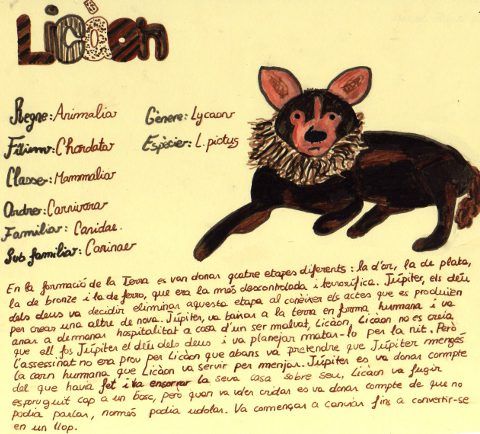 Licaon
Regne: Animalia Gènere: Lycaon
Fílum: Chordata Espècie: L. pictus
Classe: Mammalia
Ordre: Carnivora
Familia: Canidae.
Sub familia: Caninae
En la formació de la Terra es van donar quatre etapes diferents: la d'or, la de plata,
la de bronze i la de ferro, que era la més descontrolada i terrorífica. Júpiter, els déu
dels deus va decidir eliminar aquesta etapa al conèixer els actes que es produïen
per crear una altre de nova. Júpiter, va baixar a la terra en forma humana i va
anar a demanar hospitalitat a casa d'un ser malvat, Licàon, Licàon no es creia
que ell fos Júpiter el déu dels deus i va planejar matar-lo per la nit. Però
l'assessinat no era prou per Licàon que abans va pretendre que Júpiter mengés
la carn humana que Licàon va servir per menjar. Júpiter es va donar compte
del que havia fet i va ensorrar la seva casa sobre seu, Licàon va fugir
esporuguit cap a un bosc, però quan va voler cridar es va donar compte de que no
podia parlar, només podia udolar. Va començar a canviar fins a convertir-se
en un llop.